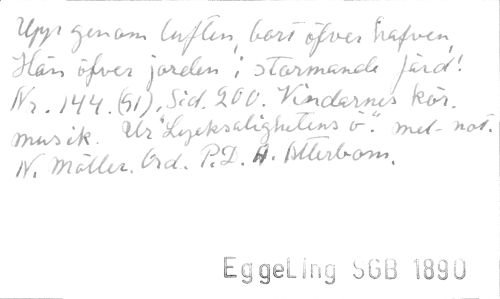 Upp genom luften, bort öfver hafven,
Hän öfver jorden i stormande färd!
Nr. 144. (91), Sid. 200. Vindarnes kör.
musik. Ur "Lycksalighetens ö". mel-not.
N. Möller. Ord. P. D. A. Atterbom.
EggeLing SGB 1890